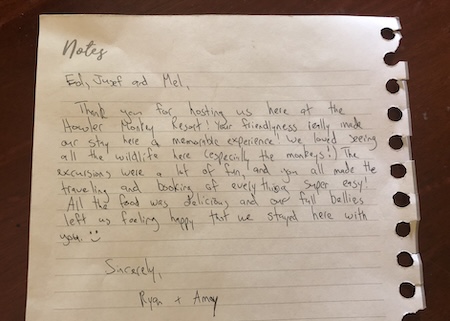 Notes
Ed, Jusef and Mel,
Thank you for hosting us here at the
Howler Monkey Resort! Your friendlyness really made
our stay here a memorable experience! We loved seeing
all the wildlife here (especially the monkeys!) The
excursions were a lot of fun, and you all made the
traveling and booking of everything super easy!
All the food was delicious and our full bellies
left us feeling happy that we stayed here with
you. :)
Sincerely,
Ryan + Amy